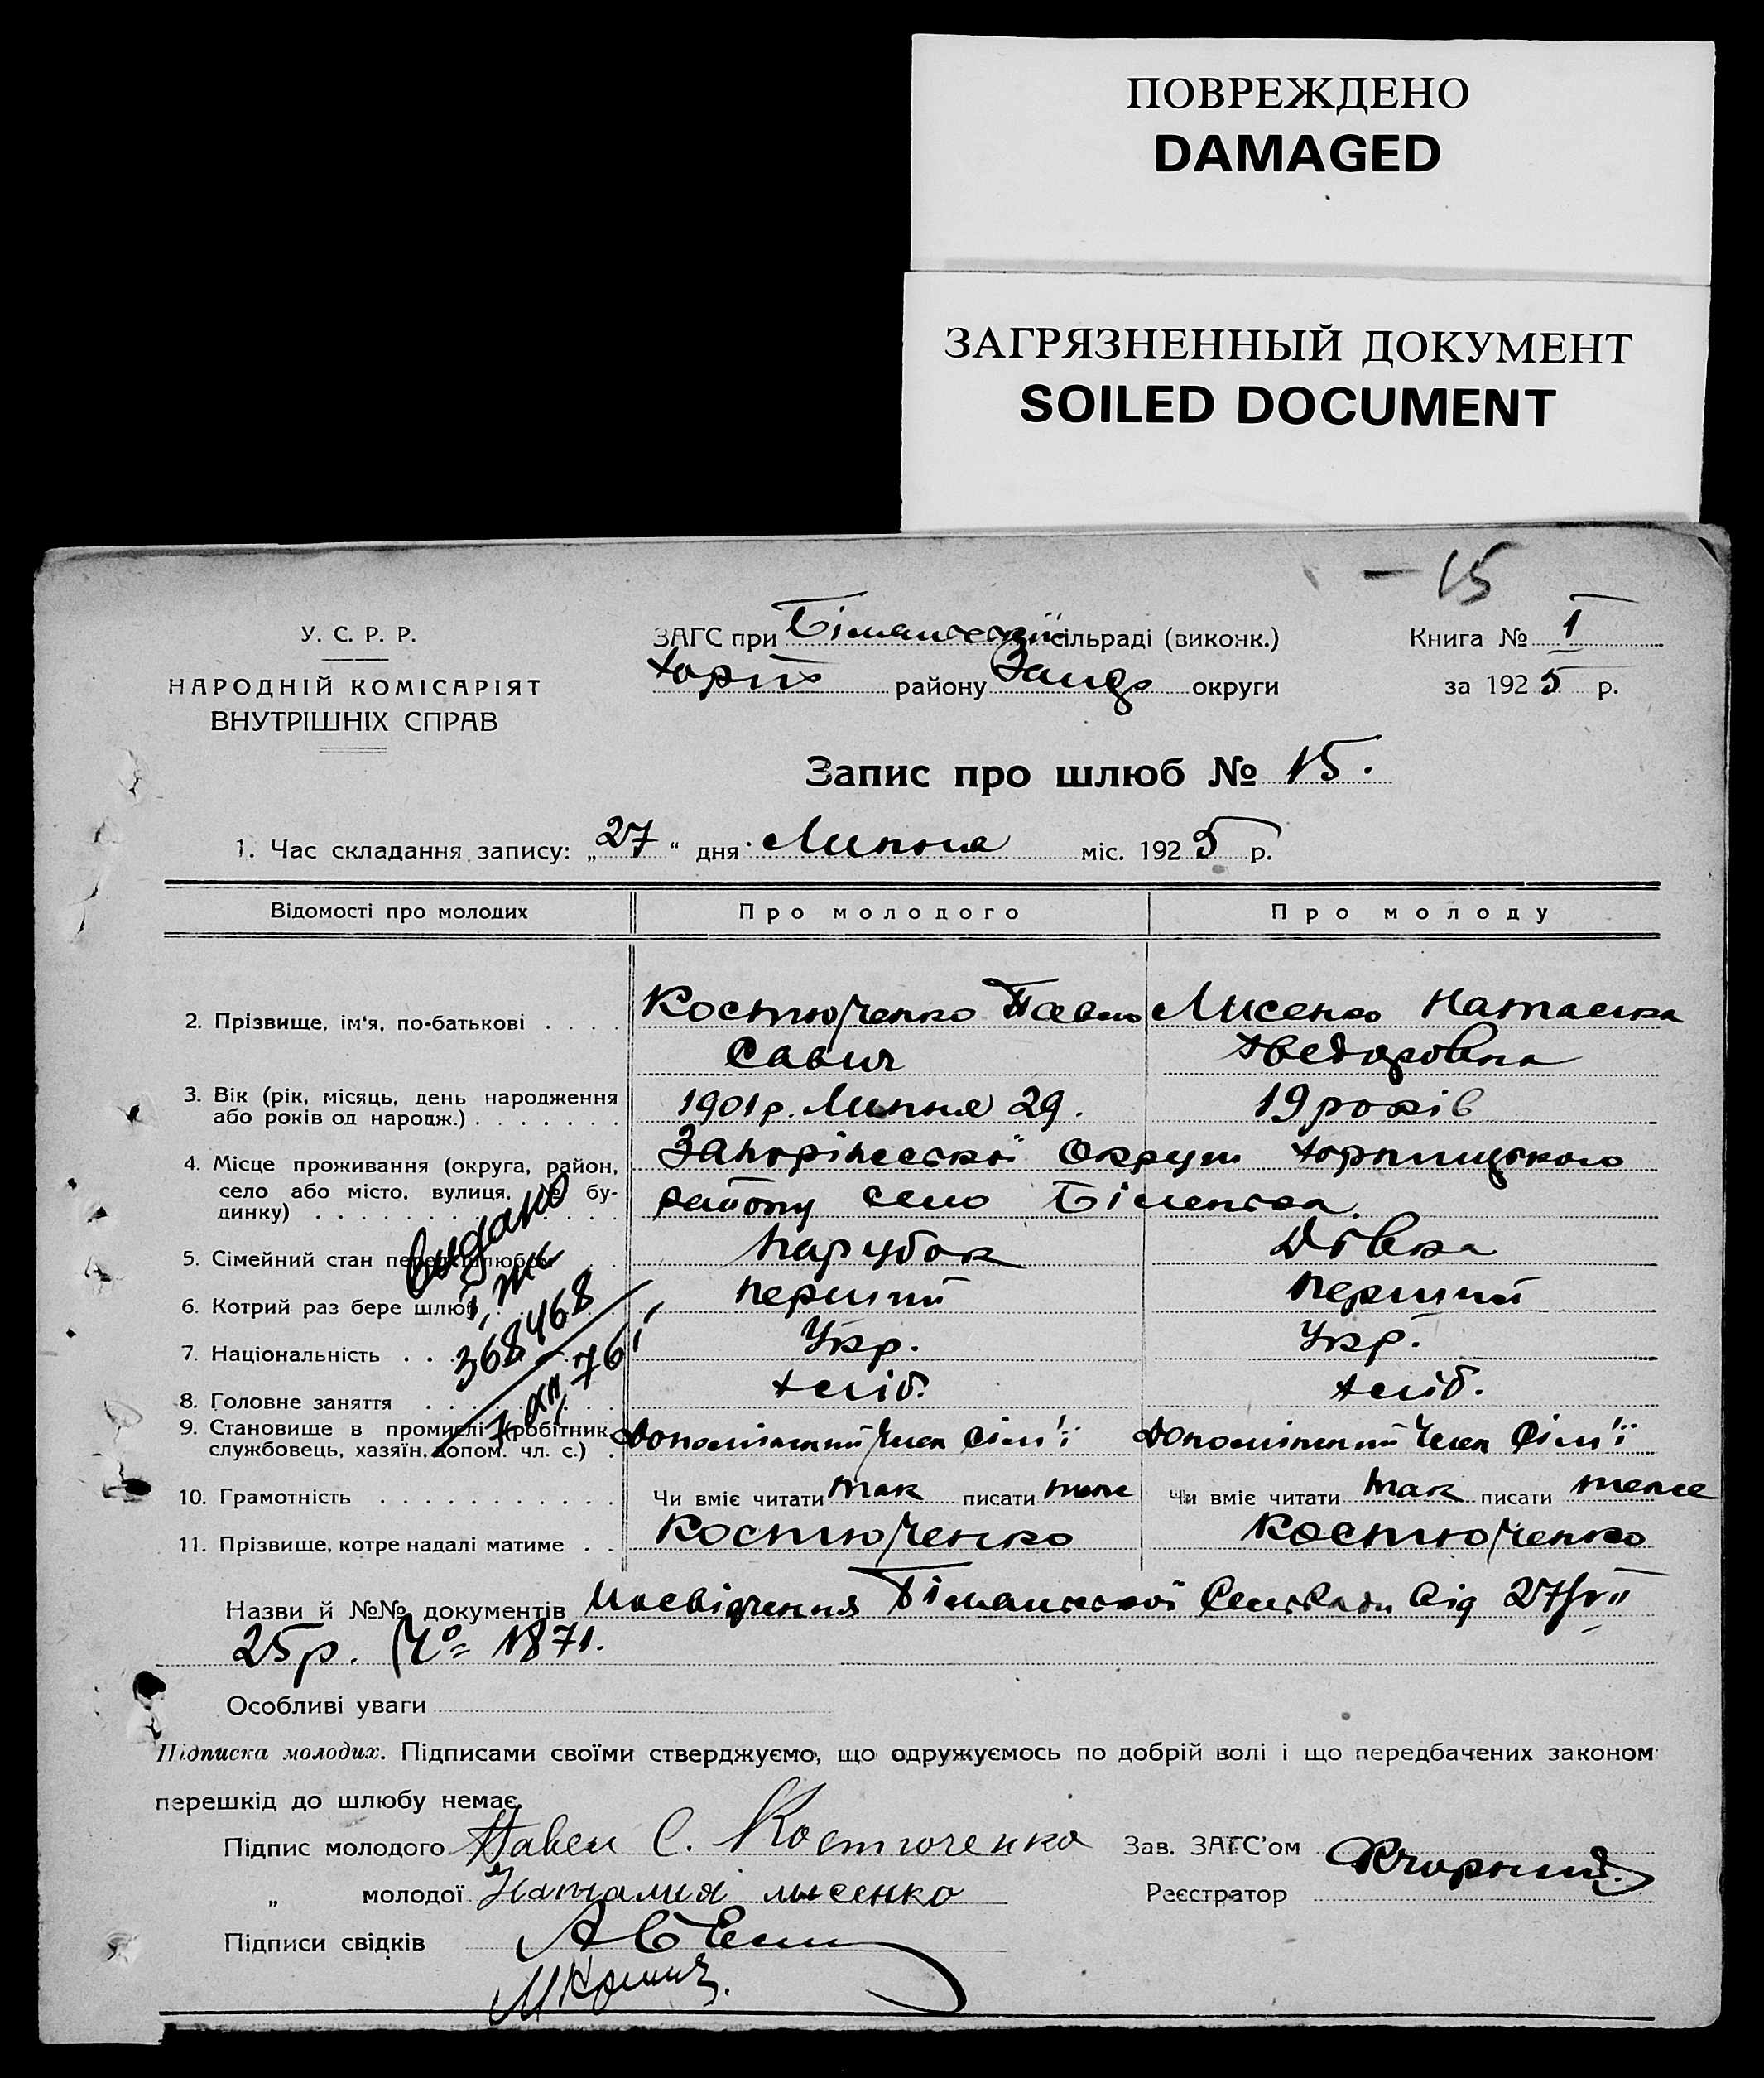 ПОВРЕЖДЕНО
DAMAGED
ЗАГРЯЗНЕННЫЙ ДОКУМЕНТ
SOILED DOCUMENT
— 15
У. С. Р. Р.
НАРОДНІЙ КОМІСАРІЯТ
ВНУТРІШНІХ СПРАВ
ЗАГС при сільраді (виконк.)
району округи
Книга № 1
за 1925 р.
Запис про шлюб № 15.
1. Час складання запису: „27“ дня Липня міс. 1925 р.
Відомості про молодих Про молодого Про молоду
2. Прізвище, ім'я, по-батькові Костюченко Павло Лисенко Наталка
Савич Хведоровна
3. Вік (рік, місяць, день народження 1901 р. Липня 29. 19 років
або років од народж.)
4. Місце проживання (округа, район, Запоріжської Округи Хортицького
село або місто, вулиця, № бу- району село Біленька.
динку)
5. Сімейний стан перед шлюбом Парубок Дівка
6. Котрий раз бере шлюб перший перший
7. Національність Укр. Укр.
8. Головне заняття хліб. хліб.
9. Становище в промислі (робітник, Допоміжний Член Сім'ї Допоміжний Член Сім'ї
службовець, хазяїн, допом. чл. с.)
видано
368468
7 XII 76
10. Грамотність Чи вміє читати так писати теж Чи вміє читати так писати теж
11. Прізвище, котре надалі матиме Костюченко Костюченко
Назви й №№ документів Посвідчення Сельради від 27/VII
25 р. Ч= 1871.
Особливі уваги
Підписка молодих. Підписами своїми стверджуємо, що одружуємось по добрій волі і що передбачених законом
перешкід до шлюбу немає.
Підпис молодого Павел С. Костюченко Зав. ЗАГС'ом
„ молодої Наталия лысенко Реєстратор
Підписи свідків